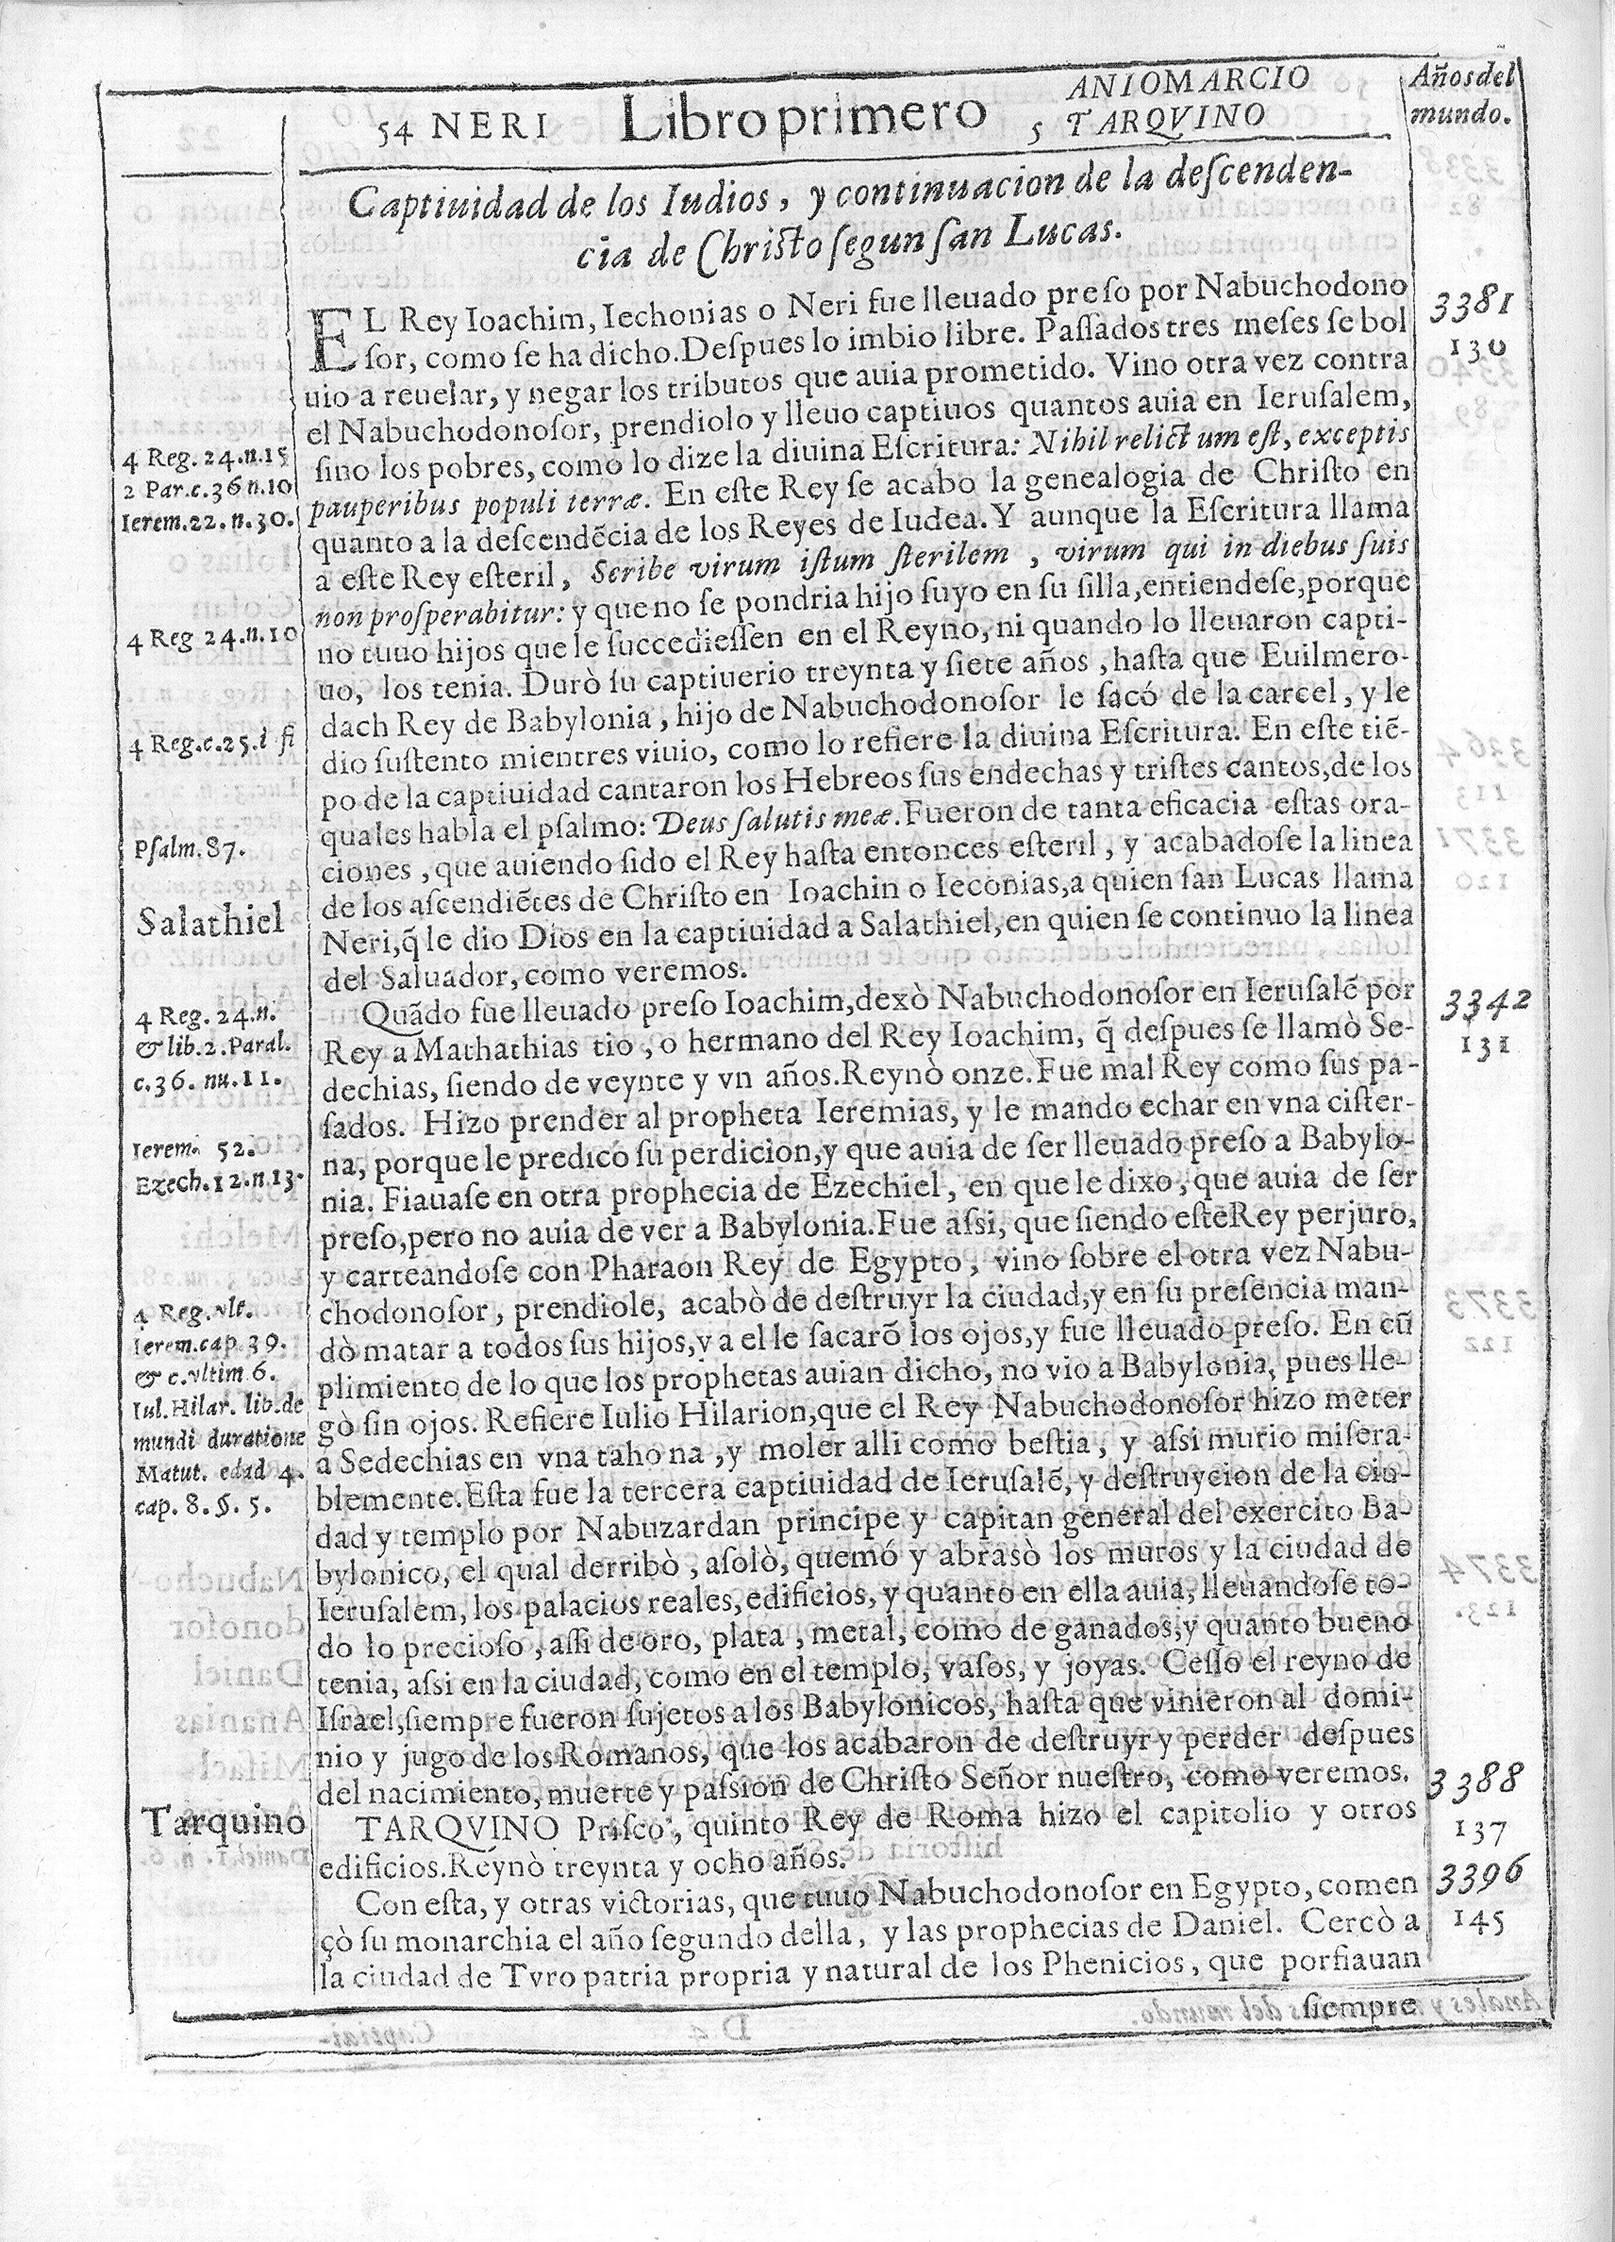 ANIOMARCIO
54 NERI Libro primero 5 TARQVINO
Años del
mundo.
Captiuidad de los Iudios, y continuacion de la deſcenden-
cia de Chriſto ſegun ſan Lucas.
EL Rey Ioachim, Iechonias o Neri fue lleuado preſo por Nabuchodono
ſor, como ſe ha dicho. Deſpues lo imbio libre. Paſſados tres meſes ſe bol
uio a reuelar, y negar los tributos que auia prometido. Vino otra vez contra
el Nabuchodonoſor, prendiolo y lleuo captiuos quantos auia en Ieruſalem,
ſino los pobres, como lo dize la diuina Eſcritura: Nihil relictum eſt, exceptis
pauperibus populi terræ. En eſte Rey ſe acabo la genealogia de Chriſto en
quanto a la deſcendẽcia de los Reyes de Iudea. Y aunque la Eſcritura llama
a eſte Rey eſteril, Scribe virum iſtum ſterilem, virum qui in diebus ſuis
non proſperabitur: y que no ſe pondria hijo ſuyo en ſu ſilla, entiendeſe, porque
no tuuo hijos que le ſuccedieſſen en el Reyno, ni quando lo lleuaron capti-
uo, los tenia. Durò ſu captiuerio treynta y ſiete años, haſta que Euilmero-
dach Rey de Babylonia, hijo de Nabuchodonoſor le ſacó de la carcel, y le
dio ſuſtento mientres viuio, como lo refiere la diuina Eſcritura. En eſte tiẽ-
po de la captiuidad cantaron los Hebreos ſus endechas y triſtes cantos, de los
quales habla el pſalmo: Deus ſalutis meæ. Fueron de tanta eficacia eſtas ora-
ciones, que auiendo ſido el Rey haſta entonces eſteril, y acabadoſe la linea
de los aſcendiẽtes de Chriſto en Ioachin o Ieconias, a quien ſan Lucas llama
Neri, q̃ le dio Dios en la captiuidad a Salathiel, en quien ſe continuo la linea
del Saluador, como veremos.
Quãdo fue lleuado preſo Ioachim, dexò Nabuchodonoſor en Ieruſalẽ por
Rey a Mathathias tio, o hermano del Rey Ioachim, q̃ deſpues ſe llamò Se-
dechias, ſiendo de veynte y vn años. Reynò onze. Fue mal Rey como ſus pa-
ſados. Hizo prender al propheta Ieremias, y le mando echar en vna ciſter-
na, porque le predicó ſu perdicion, y que auia de ſer lleuado preſo a Babylo-
nia. Fiauaſe en otra prophecia de Ezechiel, en que le dixo, que auia de ſer
preſo, pero no auia de ver a Babylonia. Fue aſsi, que ſiendo eſte Rey perjuro,
y carteandoſe con Pharaon Rey de Egypto, vino ſobre el otra vez Nabu-
chodonoſor, prendiole, acabò de deſtruyr la ciudad, y en ſu preſencia man-
dò matar a todos ſus hijos, y a el le ſacarõ los ojos, y fue lleuado preſo. En cũ
plimiento de lo que los prophetas auian dicho, no vio a Babylonia, pues lle-
gò ſin ojos. Refiere Iulio Hilarion, que el Rey Nabuchodonoſor hizo meter
a Sedechias en vna tahona, y moler alli como beſtia, y aſsi murio miſera-
blemente. Eſta fue la tercera captiuidad de Ieruſalẽ, y deſtruycion de la ciu-
dad y templo por Nabuzardan principe y capitan general del exercito Ba-
bylonico, el qual derribò, aſolò, quemó y abrasò los muros y la ciudad de
Ieruſalem, los palacios reales, edificios, y quanto en ella auia, lleuandoſe to-
do lo precioſo, aſſi de oro, plata, metal, como de ganados, y quanto bueno
tenia, aſsi en la ciudad, como en el templo, vaſos, y joyas. Ceſſo el reyno de
Iſrael, ſiempre fueron ſujetos a los Babylonicos, haſta que vinieron al domi-
nio y jugo de los Romanos, que los acabaron de deſtruyr y perder deſpues
del nacimiento, muerte y paſsion de Chriſto Señor nueſtro, como veremos.
TARQVINO Priſco, quinto Rey de Roma hizo el capitolio y otros
edificios. Reynò treynta y ocho años.
Con eſta, y otras victorias, que tuuo Nabuchodonoſor en Egypto, comen
çò ſu monarchia el año ſegundo della, y las prophecias de Daniel. Cercò a
la ciudad de Tyro patria propria y natural de los Phenicios, que porfiauan
ſiempre
4 Reg. 24.n.15
2 Par.c.36 n.10
Ierem.22.n.30.
4 Reg 24.n.10
4 Reg.c.25.i fi
Pſalm.87.
Salathiel
4 Reg. 24.n.
& lib.2.Paral.
c.36. nu.11.
Ierem. 52.
Ezech.12.n.13.
4 Reg.vlt.
Ierem.cap 39.
& c.vltim 6.
Iul.Hilar. lib.de
mundi duratione
Matut. edad 4.
cap. 8. §. 5.
Tarquino
3381
130
3342
131
3388
137
3396
145